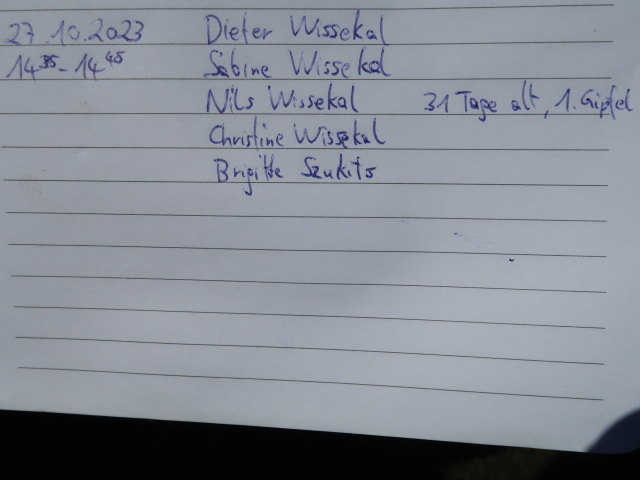 27.10.2023 Dieter Wissekal
14³⁵-14⁴⁵ Sabine Wissekal
Nils Wissekal 31 Tage alt, 1. Gipfel
Christine Wissekal
Brigitte Szukits